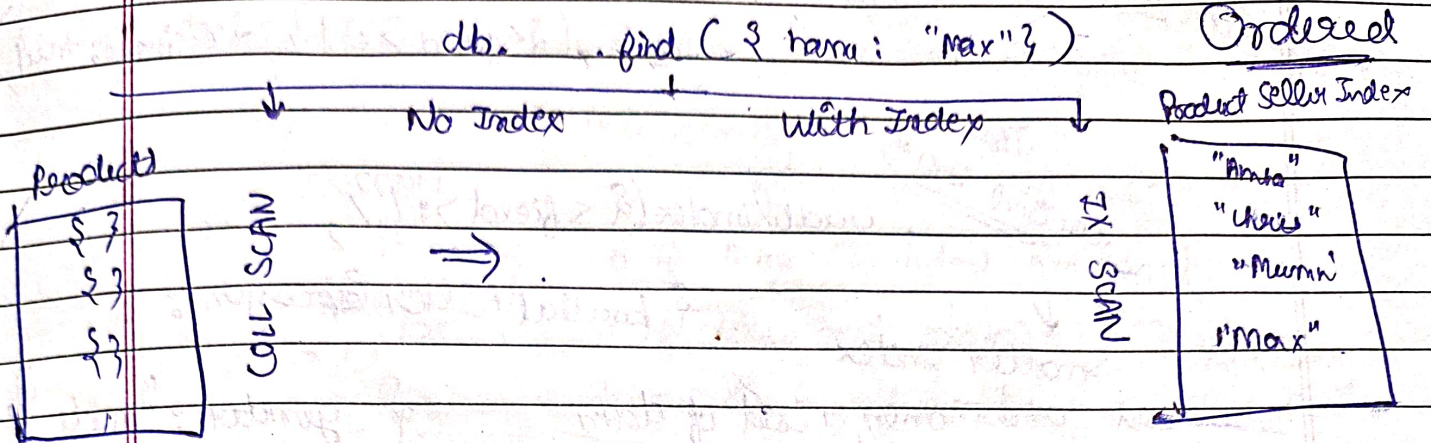 db. .find ( { name : "Max" } )
Ordered
No Index
With Index
Product Seller Index
Products
{ }
{ }
{ }
COLL SCAN
⇒
IX SCAN
"Chris"
"Max"